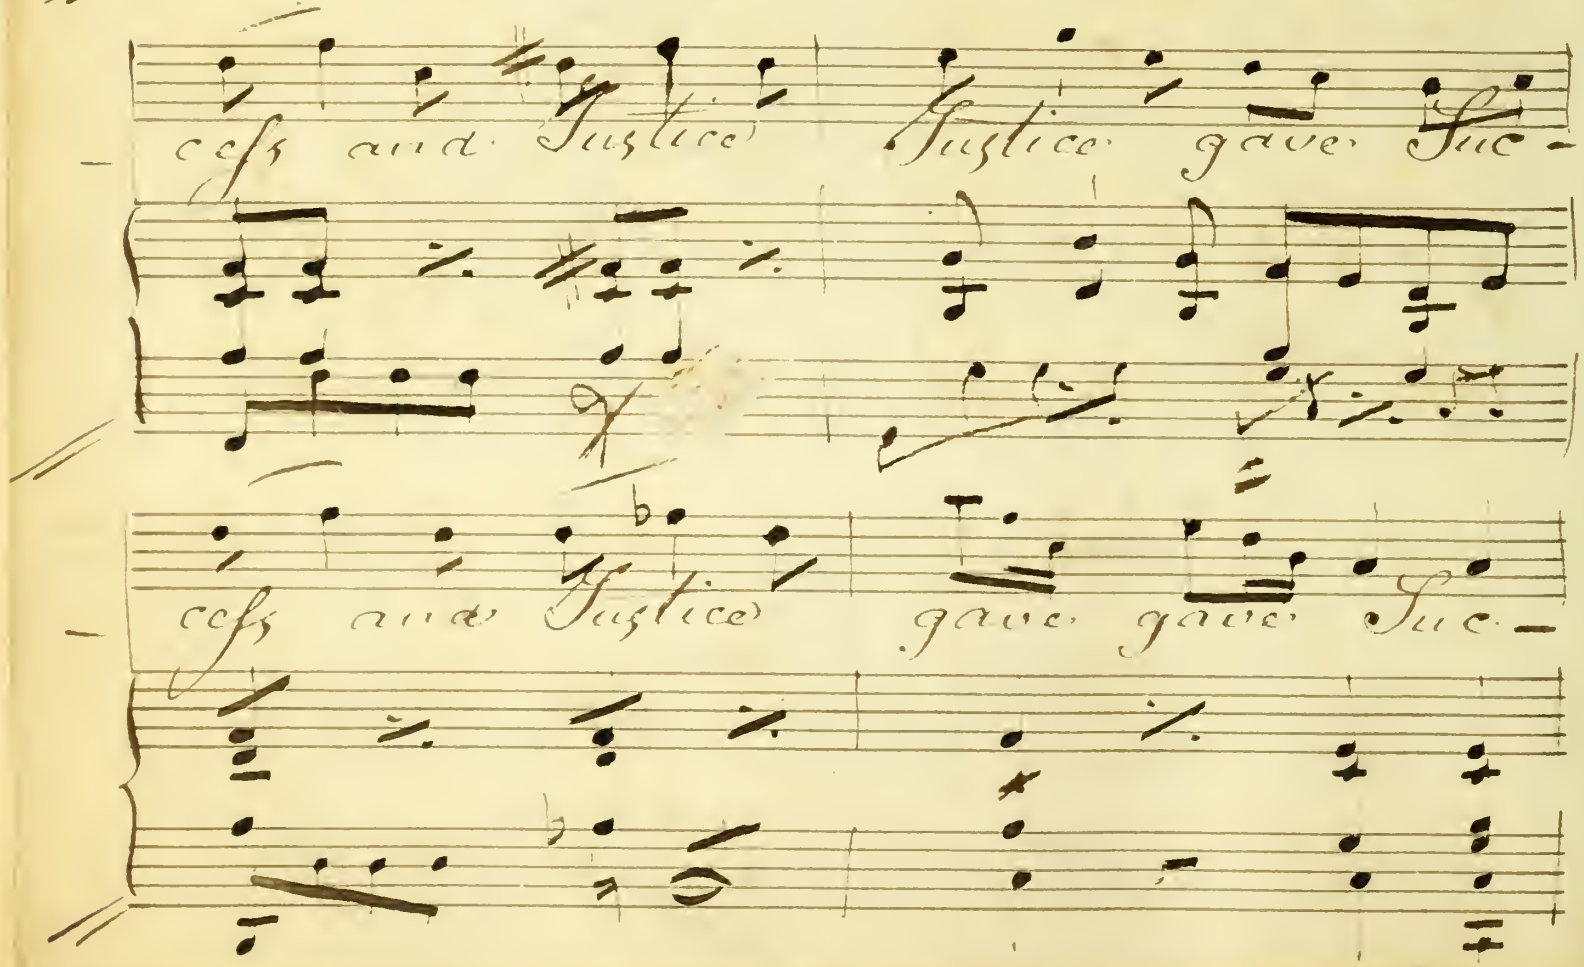 - ceſs and Justice Justice gave Suc -
- ceſs and Justice gave gave Suc -